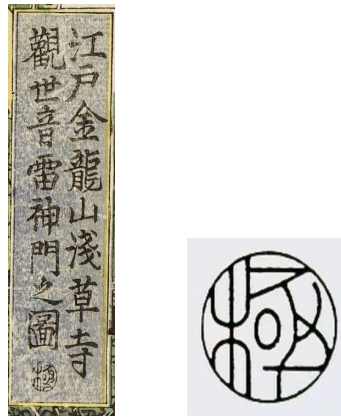 江戸金龍山淺草寺
觀世音雷神門之圖
極